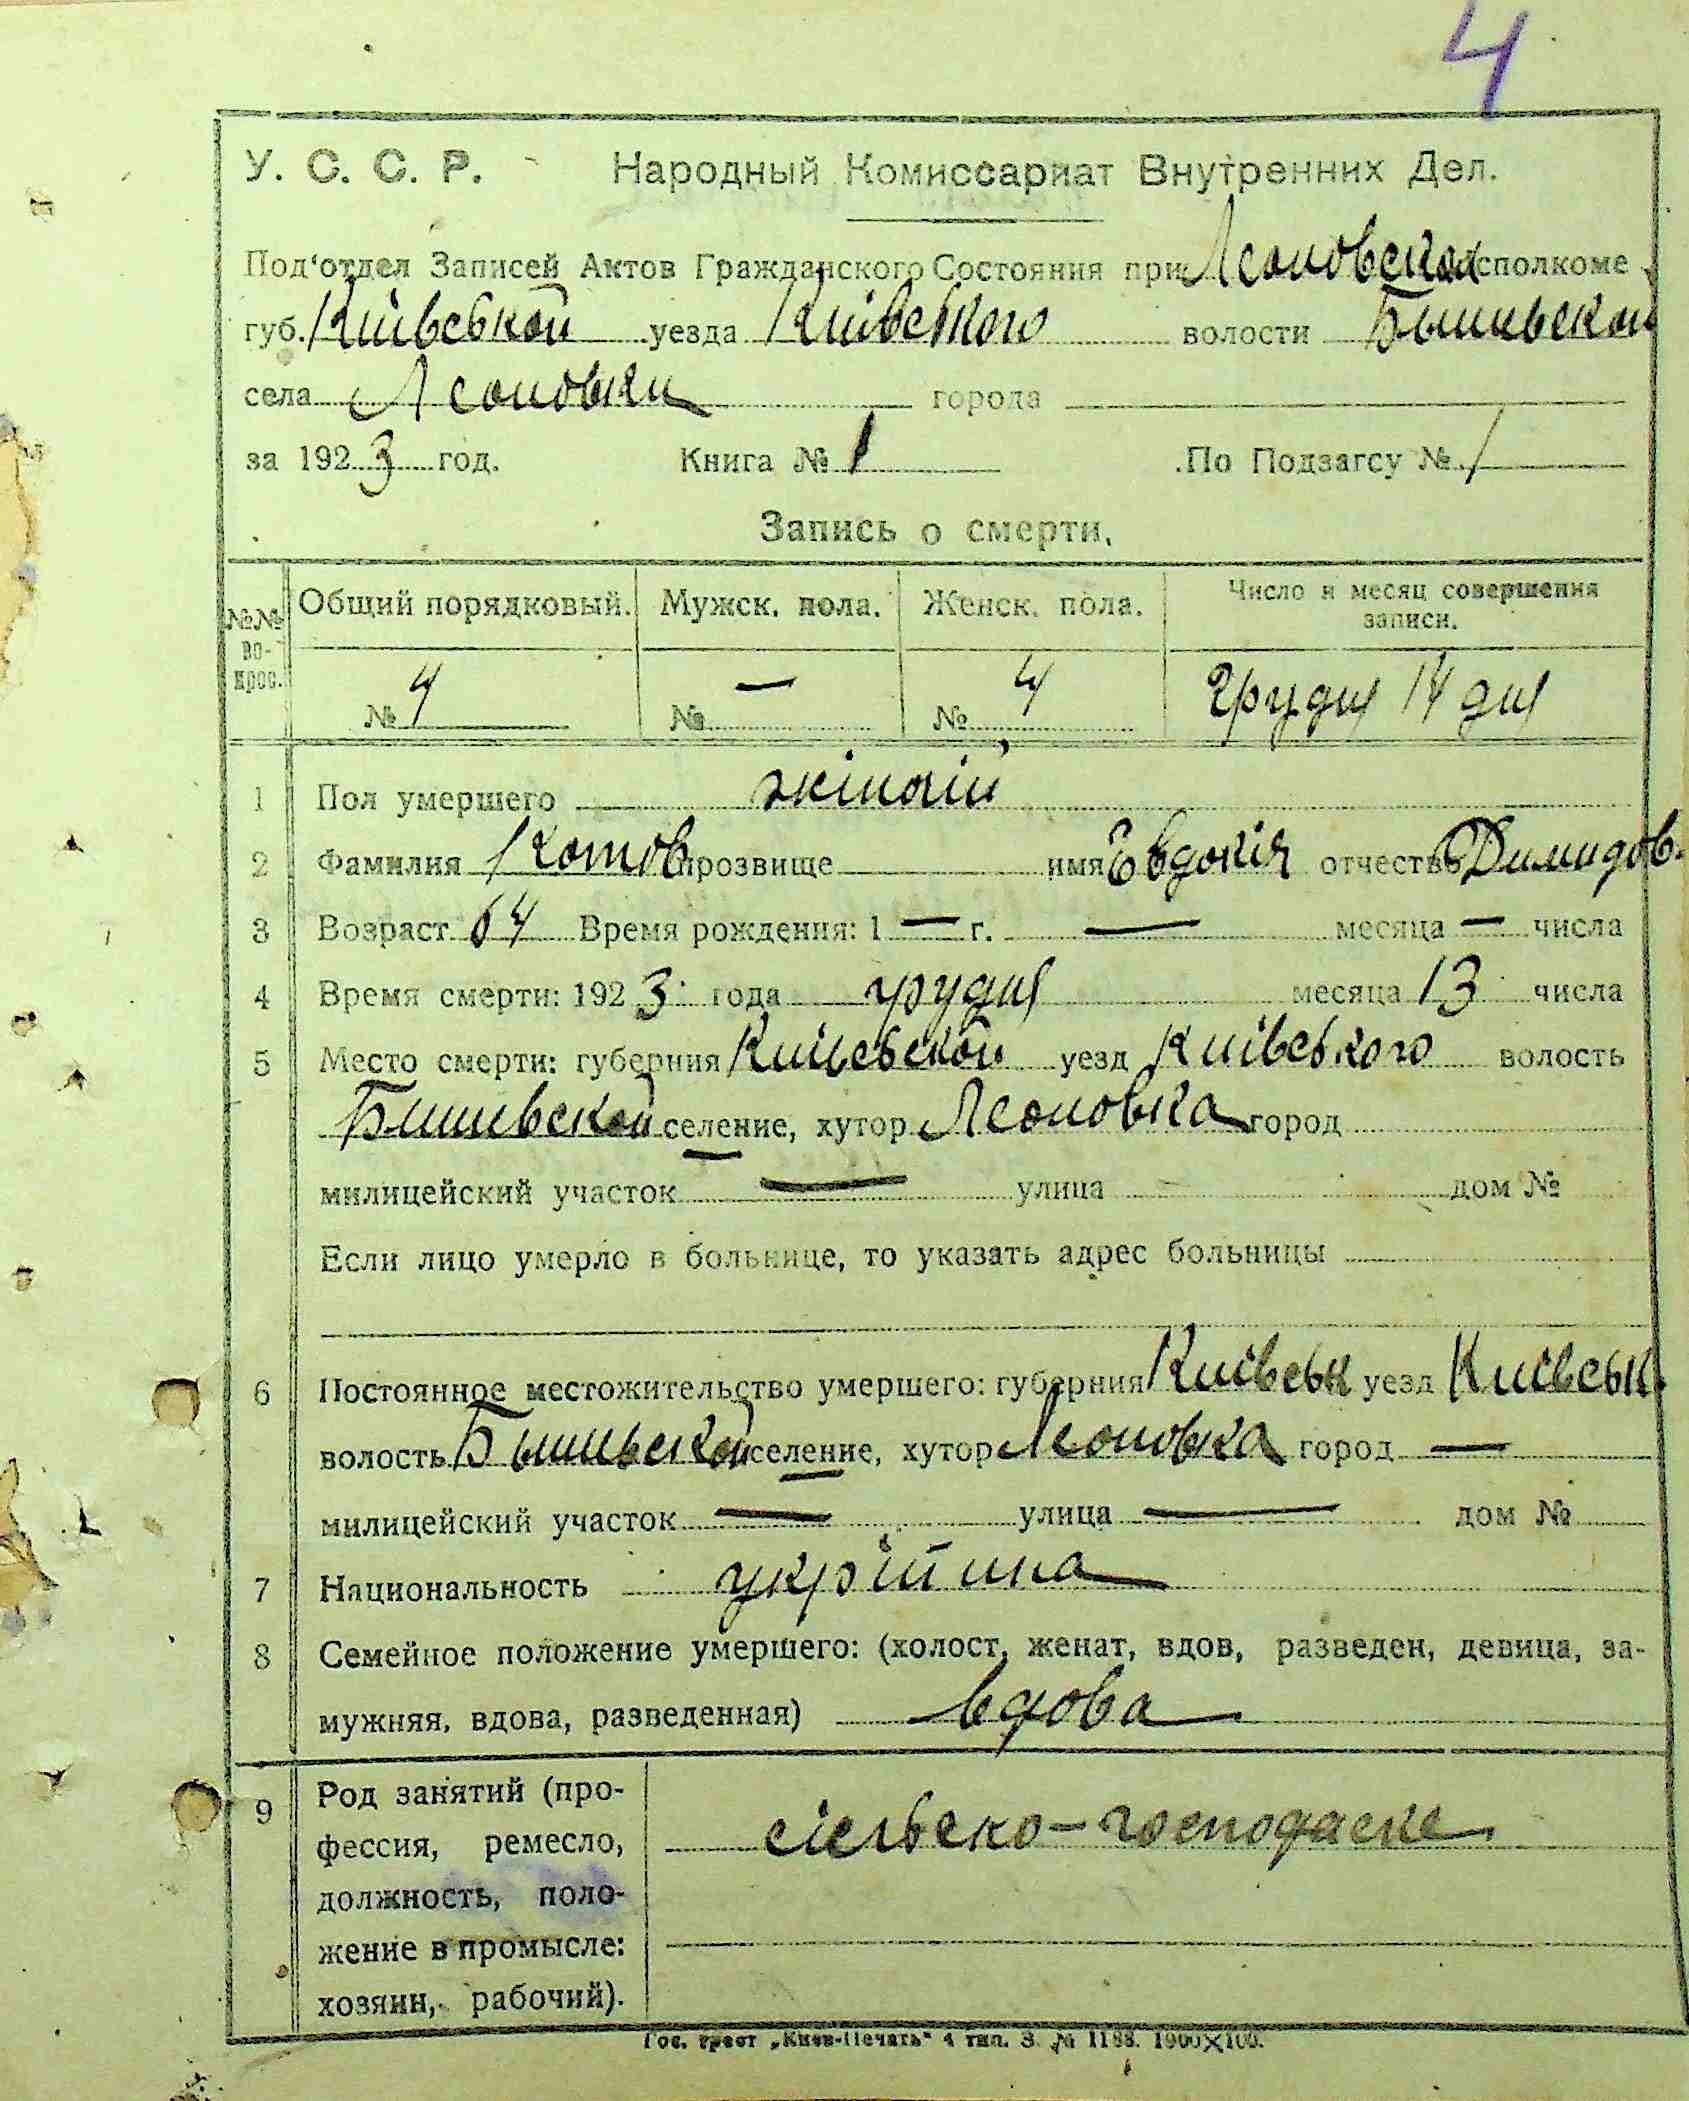 4
У. С. С. Р. Народный Комиссариат Внутренних Дел.
Под'отдел Записей Актов Гражданского Состояния при Леоновском исполкоме
губ. Київської уезда Київського волости Бышивской
села Леоновки города
за 1923 год. Книга № 1 По Подзагсу № 1
Запись о смерти.
№№ вопрос. Общий порядковый. Мужск. пола. Женск. пола. Число и месяц совершения записи.
№ 4 № — № 4 Грудня 14 дня
1 Пол умершего жіночій
2 Фамилия Котов прозвище имя Євдокія отчество Димидов.
3 Возраст 64 Время рождения: 1 — г. — месяца — числа
4 Время смерти: 1923 года грудня месяца 13 числа
5 Место смерти: губерния Київської уезд Київського волость
Бишивской селение, хутор Леоновка город
милицейский участок — улица дом №
Если лицо умерло в больнице, то указать адрес больницы
6 Постоянное местожительство умершего: губерния Київськ уезд Київськ.
волость Бышивской селение, хутор Леоновка город —
милицейский участок — улица — дом №
7 Национальность
8 Семейное положение умершего: (холост, женат, вдов, разведен, девица, за-
мужняя, вдова, разведенная) вдова
9 Род занятий (про-
фессия, ремесло, сільско-господаске
должность, поло-
жение в промысле:
хозяин, рабочий).
Гос. трест „Киев-Печать“ 4 тип. З. № 1188. 1900×100.